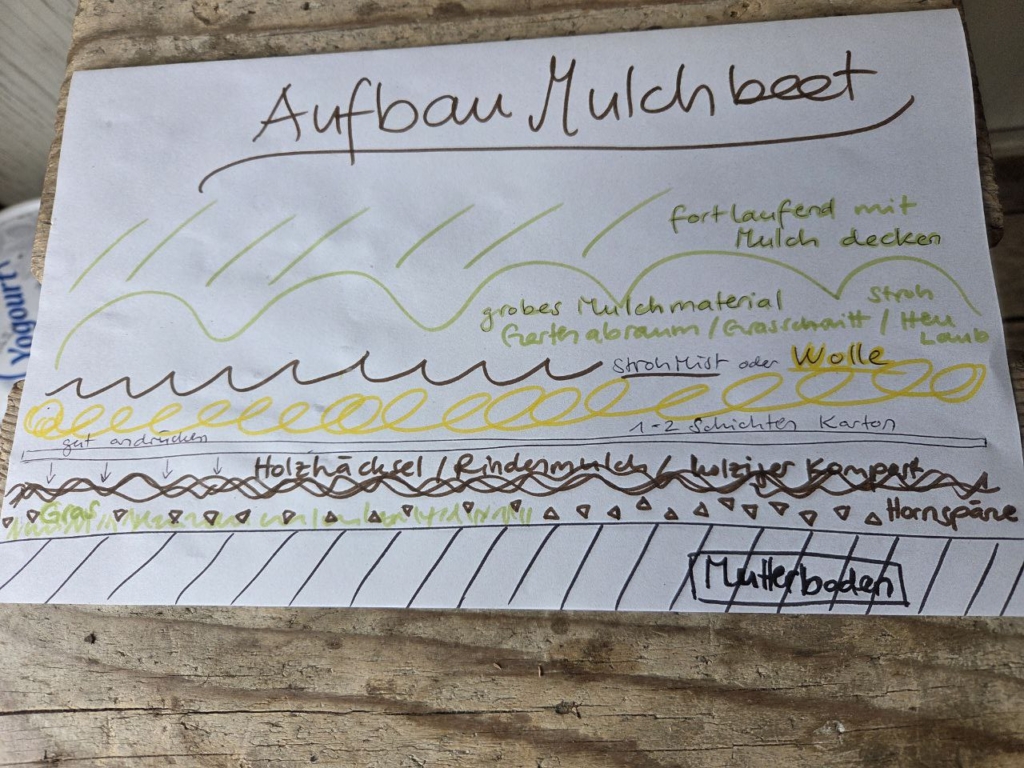 Aufbau Mulchbeet
fortlaufend mit
Mulch decken
grobes Mulchmaterial
Gartenabraum / Grasschnitt / Heu
Stroh
Laub
Strohmist oder Wolle
gut andrücken
1-2 Schichten Karton
Holzhäcksel / Rindenmulch / holziger Kompost
Gras
Hornspäne
Mutterboden
Yogourt